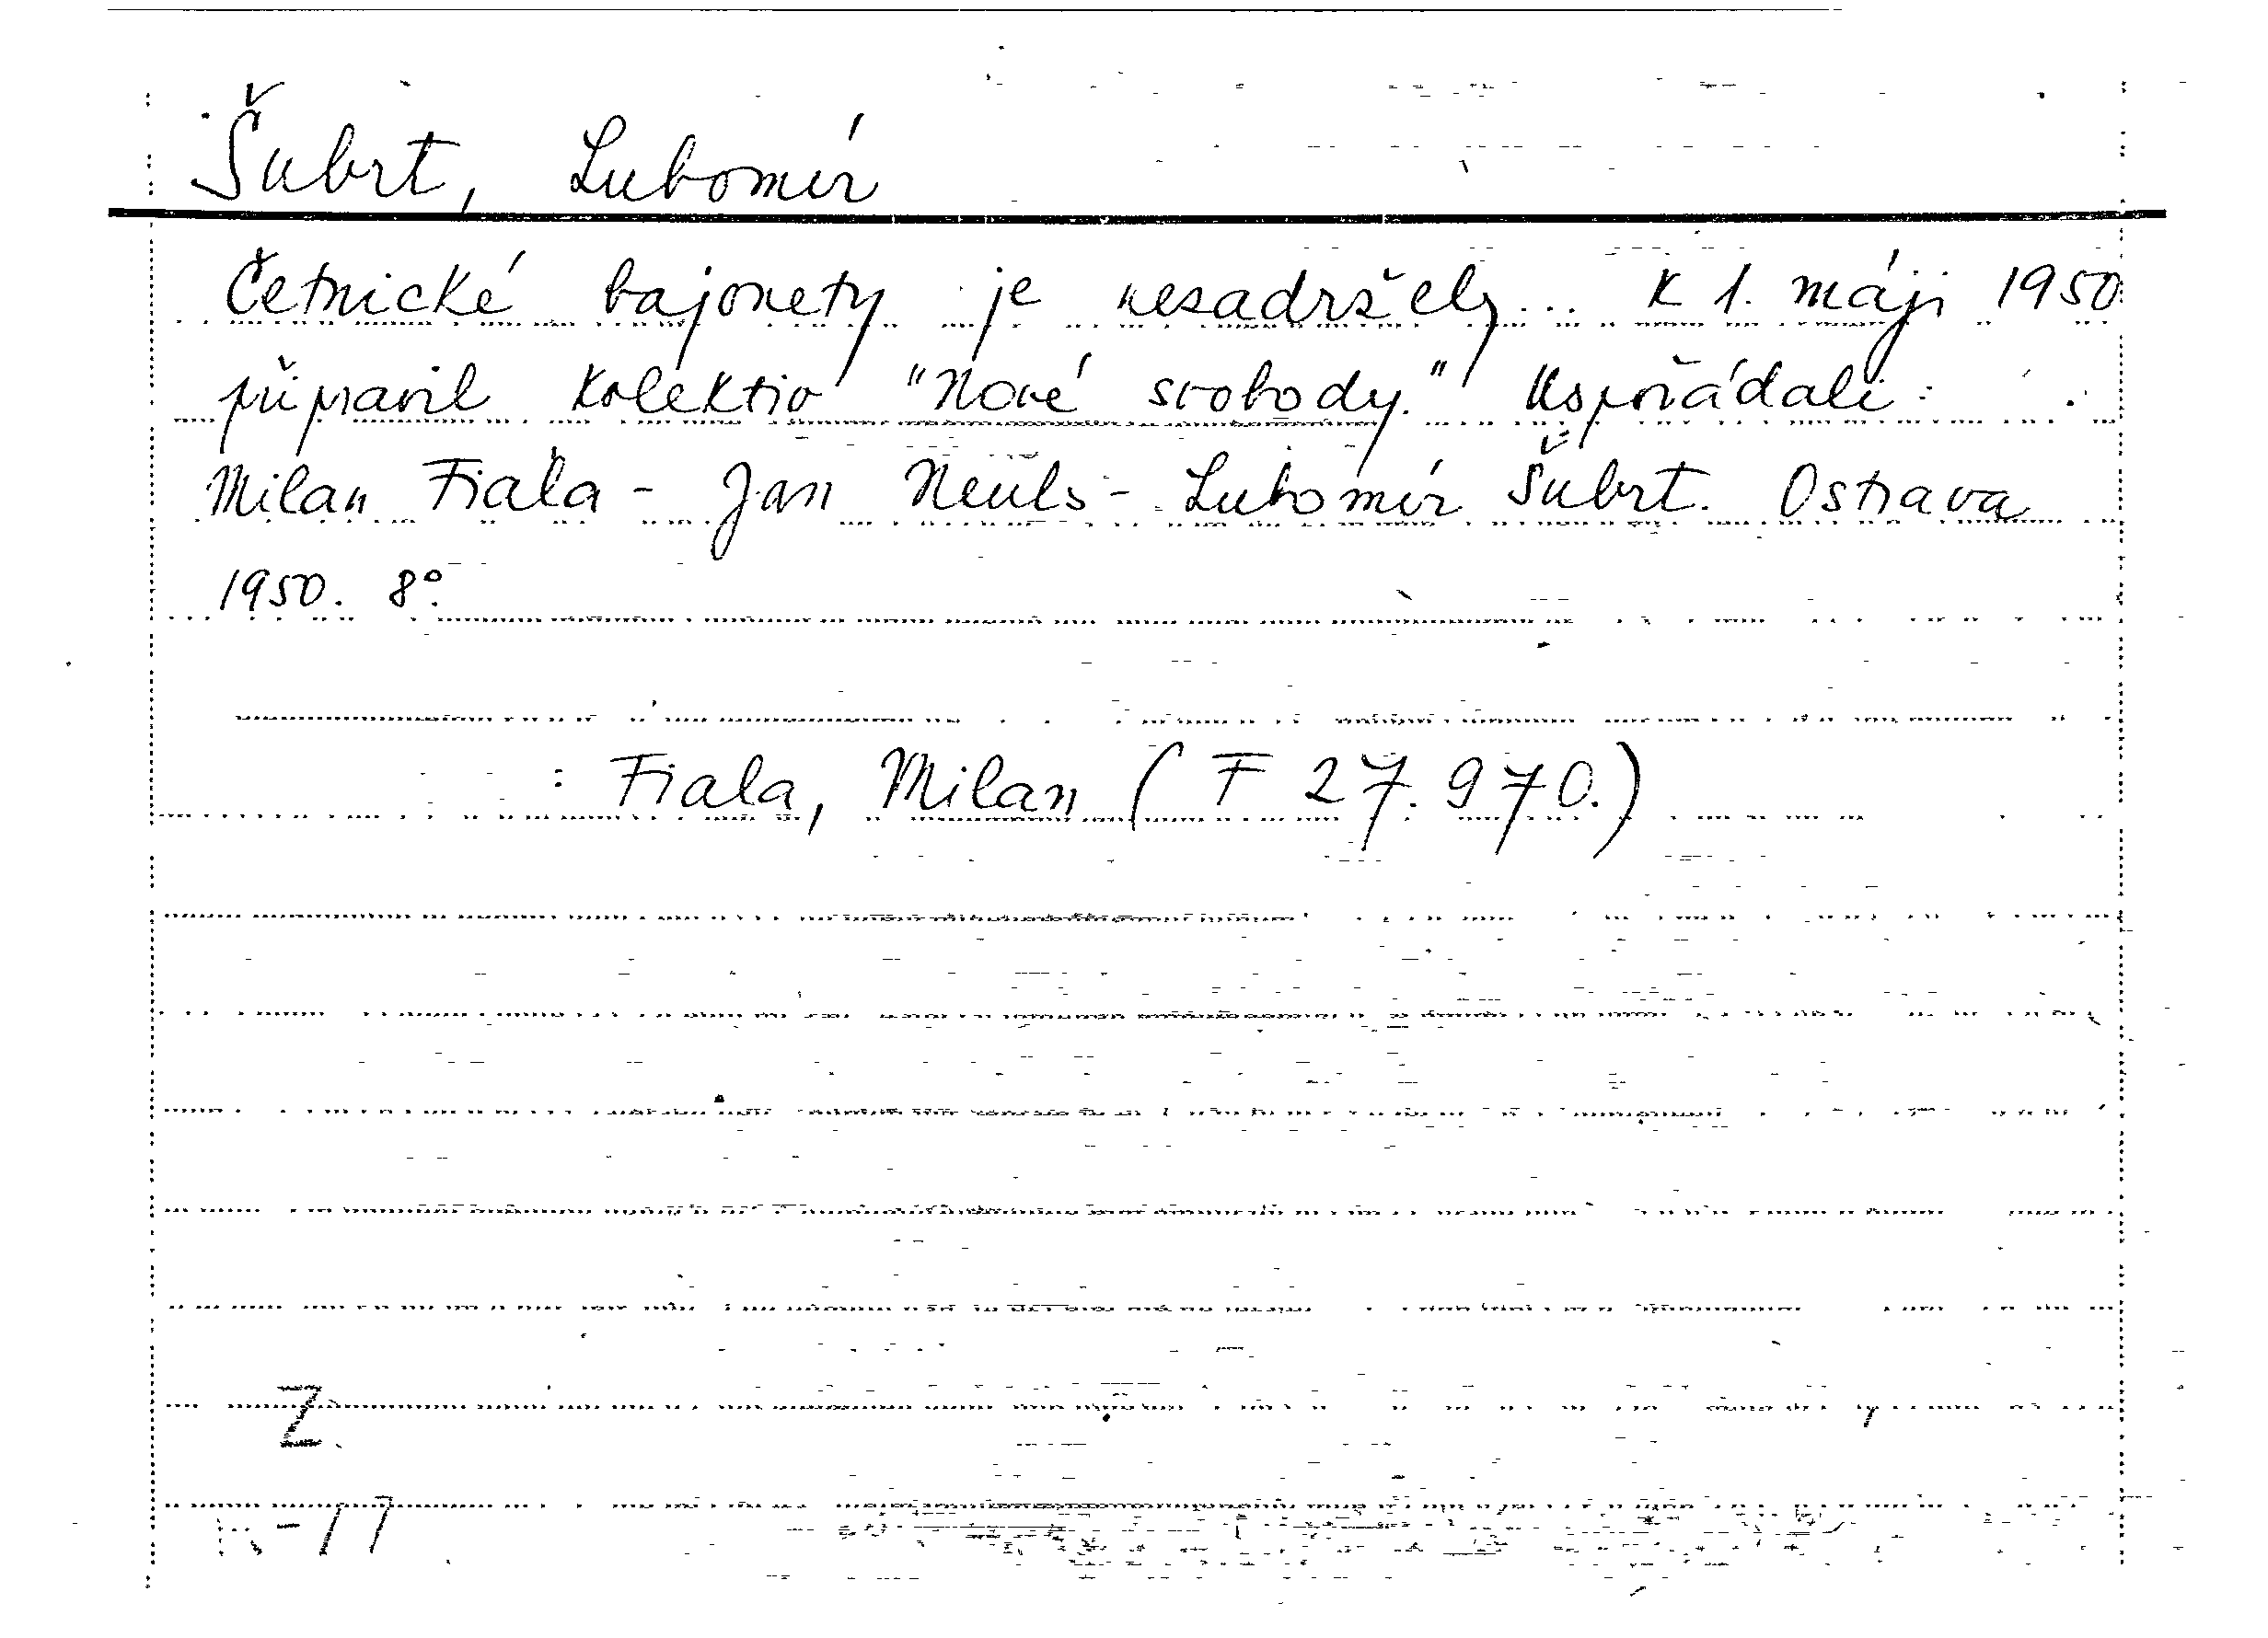 Šubrt, Lubomír
Četnické bajonety je nezadržely... K 1. máji 1950
připravil kolektiv "Nové svobody." Uspořádali:
Milan Fiala - Jan Neuls - Lubomír Šubrt. Ostrava
1950. 8°.
: Fiala, Milan ( F 27.970.)
Z